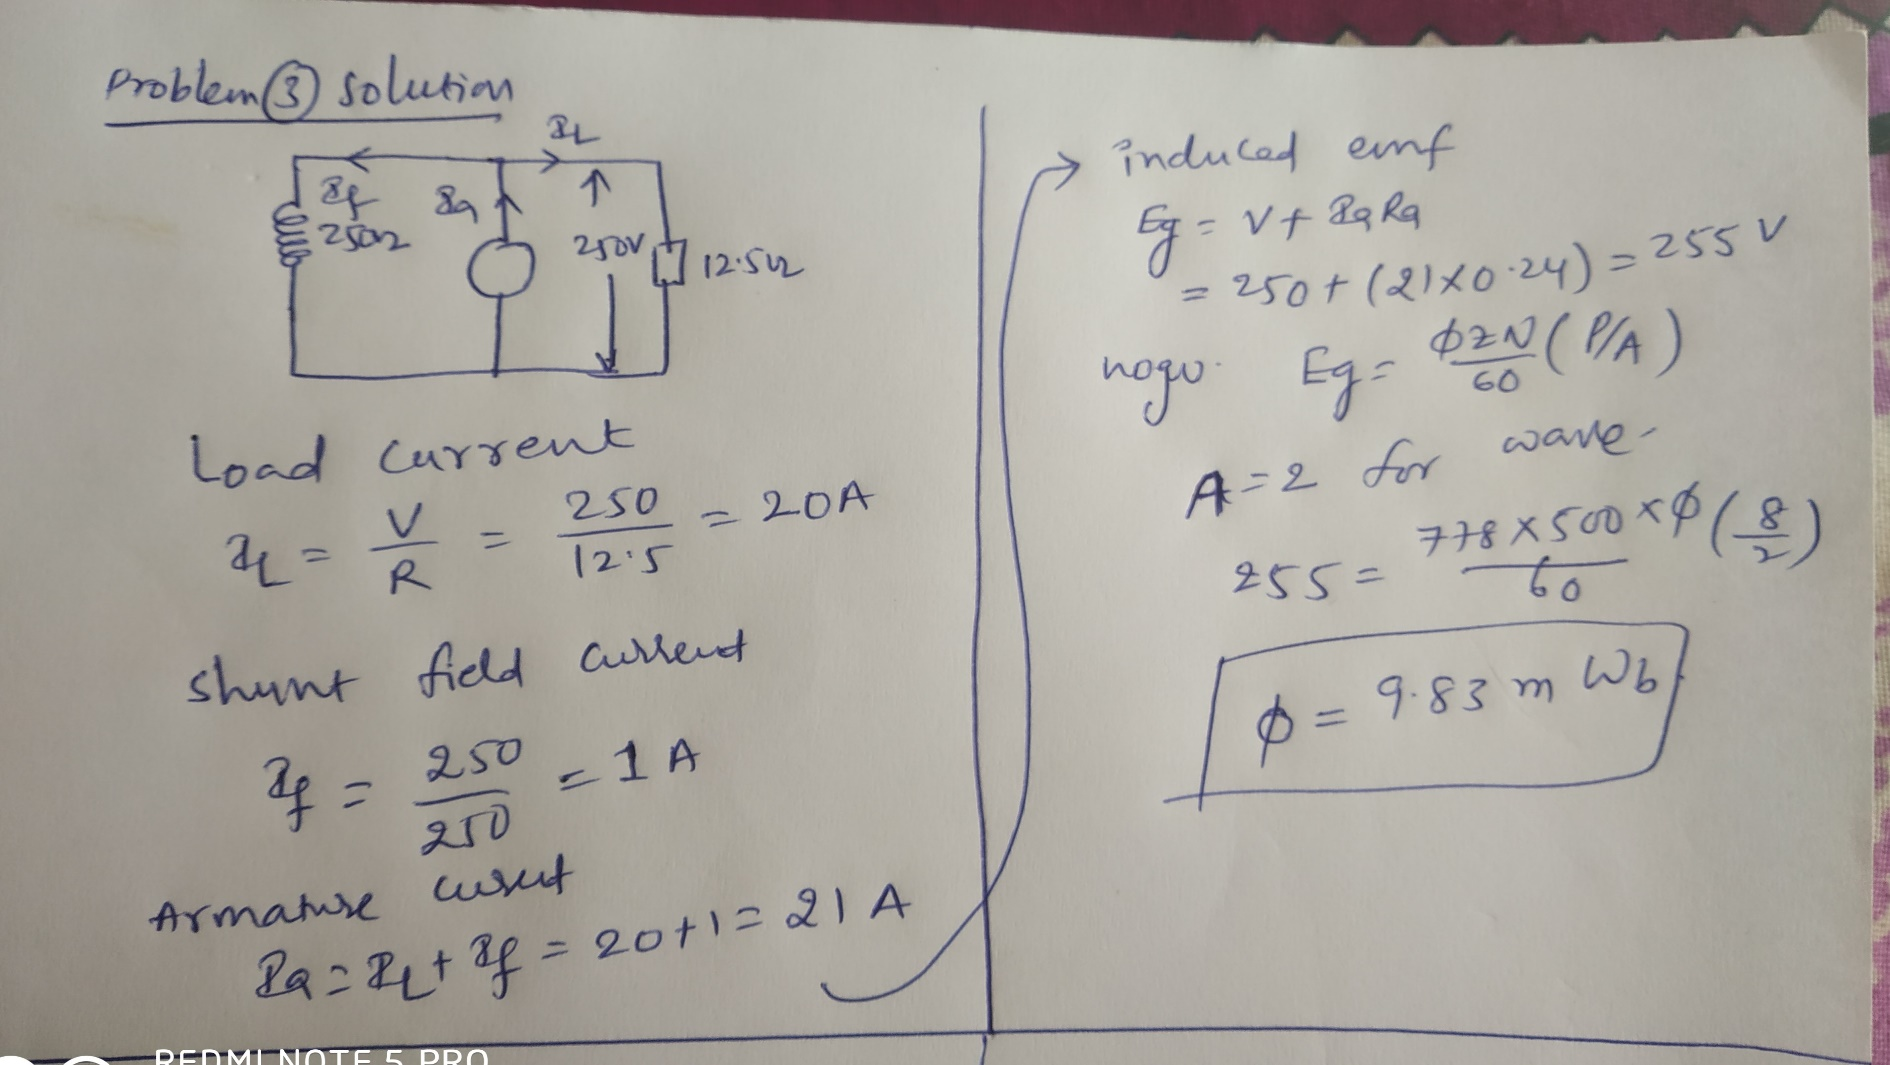 Problem ③ solution
IL
If
Ia
250Ω
250V
12.5Ω
Load current
IL = V/R = 250/12.5 = 20A
Shunt field current
If = 250/250 = 1 A
Armature current
Ia = IL + If = 20+1 = 21 A
induced emf
Eg = V + IaRa
= 250 + (21×0.24) = 255 V
Eg = ϕZN/60 (P/A)
A = 2 for wave
255 = 778×500×ϕ/60 (8/2)
ϕ = 9.83 m Wb
REDMI NOTE 5 PRO